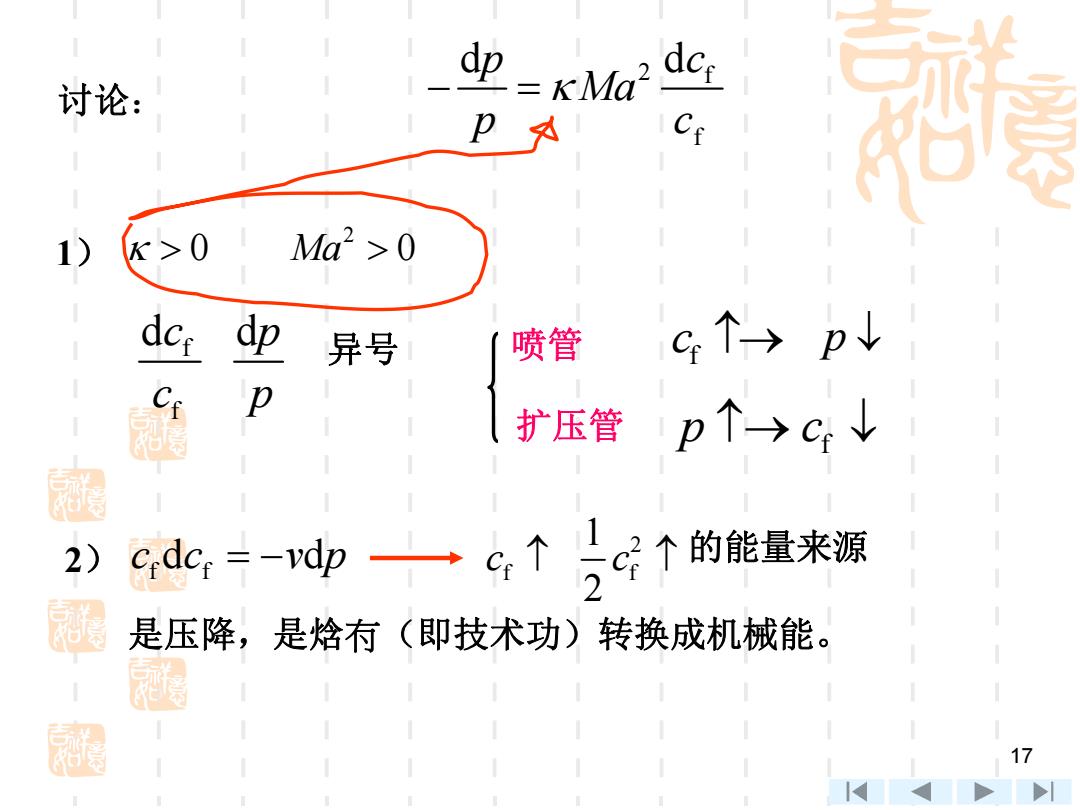 讨论：
−dp/p = κMa² dc_f/c_f
1） κ > 0 Ma² > 0
dc_f/c_f dp/p 异号
喷管 c_f ↑→ p↓
扩压管 p ↑→ c_f ↓
2） c_f dc_f = −vdp → c_f ↑ 1/2 c_f² ↑ 的能量来源
是压降，是焓㶲（即技术功）转换成机械能。
17